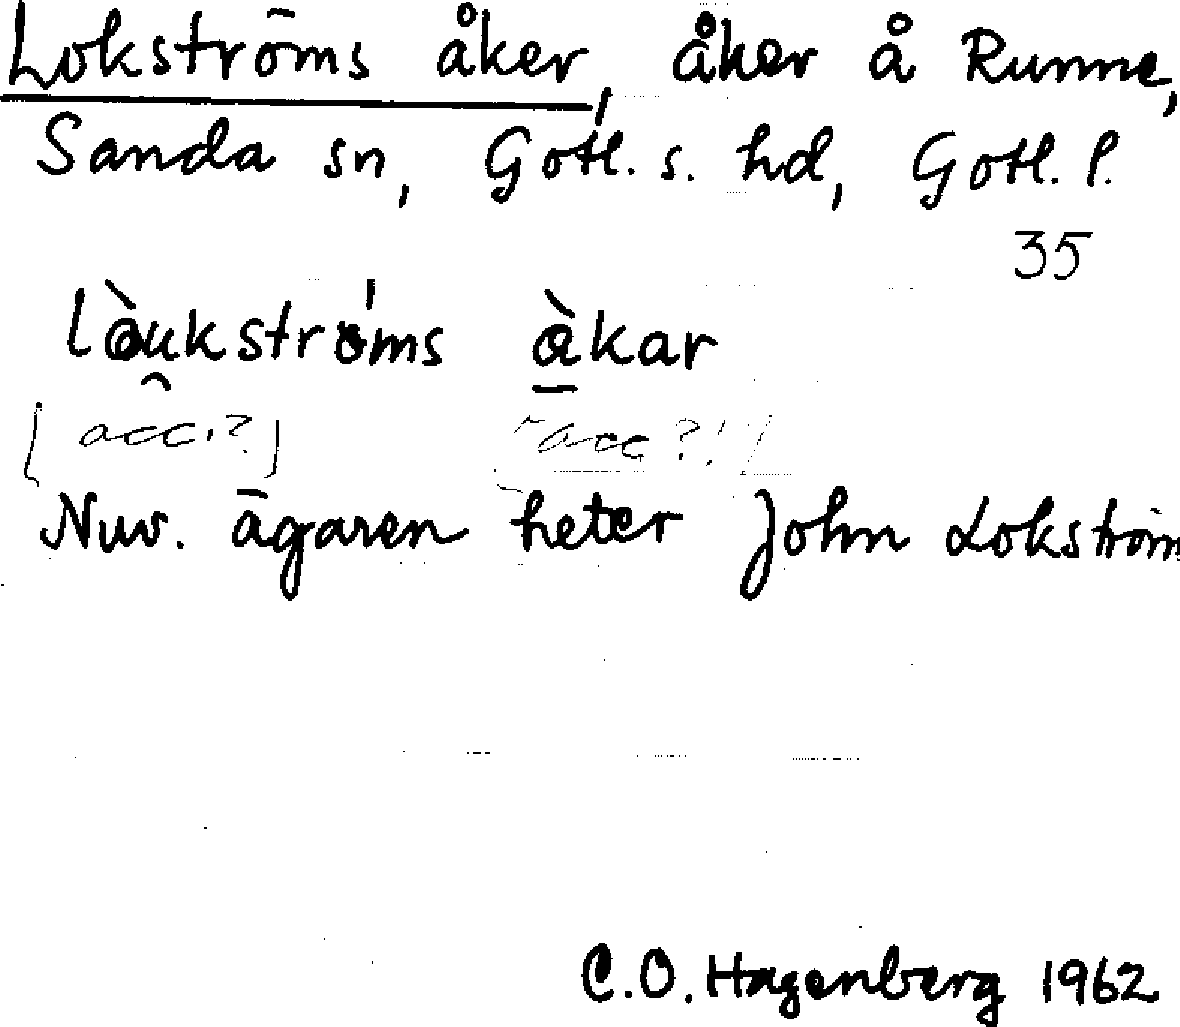 Lokströms åker, åker å Runne,
Sanda sn, Gotl. s. hd, Gotl. l.
35
lòu̯kströ́ms à̱kar
[acc.?] [acc?!]
Nuv. ägaren heter John Lokström
C.O. Hagenberg 1962